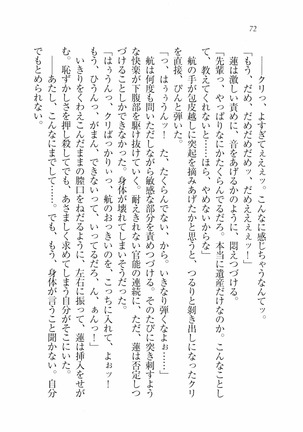 72
――クリっ、よすぎてぇぇぇッ。こんなに感じちゃうなんてッ。
「もう、だめ、だめだめだめッ、だめぇぇぇぇッ！」
蓮は激しい刺激に、音をあげるかのように、悶えつづける。
「先輩っ、やっぱりなにかたくらんでるだろ。本当に遺産だけなのか。こんなことし
て、教えてくれないと――ほら、やめないからな」
航の手が包皮越しに突起を摘みあげたかと思うと、つるりと剝き出しになったクリ
を直接、ぴんと弾いた。
「っ、はぅぅんッ！　た、たくらんでない、から。いきなり弾くなよぉ……」
航は何度も問いただしながら敏感な部分を責めつづける。そのたびに突き刺すよう
な快楽が下腹部を駆け抜けていく。耐えきれない官能の連続に、ただ、蓮は否定しつ
づけることしかできなかった。身体が壊れてしまいそうだった。
「はぅうんっ、クリばっかりぃっ、航のおっきいのを、こっちに入れて、よおッ！
もう、ひうんっ、がまん、できないって、いってるだろ、ん、ぁんっ！」
いきりをくわえこんだままの膣口をねだるように、左右に振って、蓮は挿入をせが
む。恥ずかしさを押し殺してでも、あさましく求めてしまう自分がそこにいた。
――あたし、こんなにまでして……。でも、もう、身体が言うこと聞かない。自分
でもとめられない。